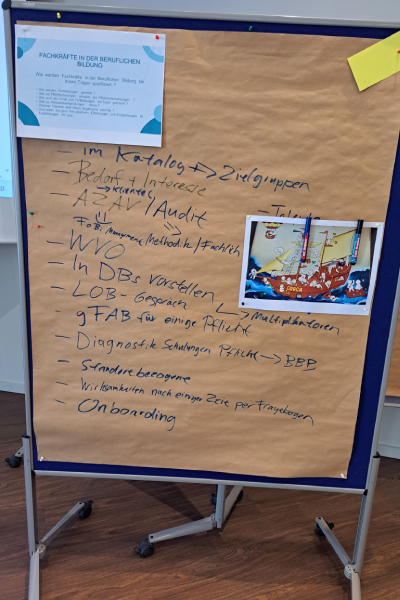 FACHKRÄFTE IN DER BERUFLICHEN
BILDUNG
Wie werden Fachkräfte in der Beruflichen Bildung bei
Ihrem Träger qualifiziert ?
- im Katalog → Zielgruppen
- Bedarf + Interesse
→ Klientel
- AZAV / Audit
FoBi, Management / Methodik / Fachlich
- WVO
- In DBs vorstellen
→ Multiplikatoren
- LOB - Gespräch
- gFAB für einige Pflicht
- Diagnostik Schulungen Pflicht → BBB
- Standortbezogene
- Wirksamkeiten nach einiger Zeit per Fragebogen
- Onboarding